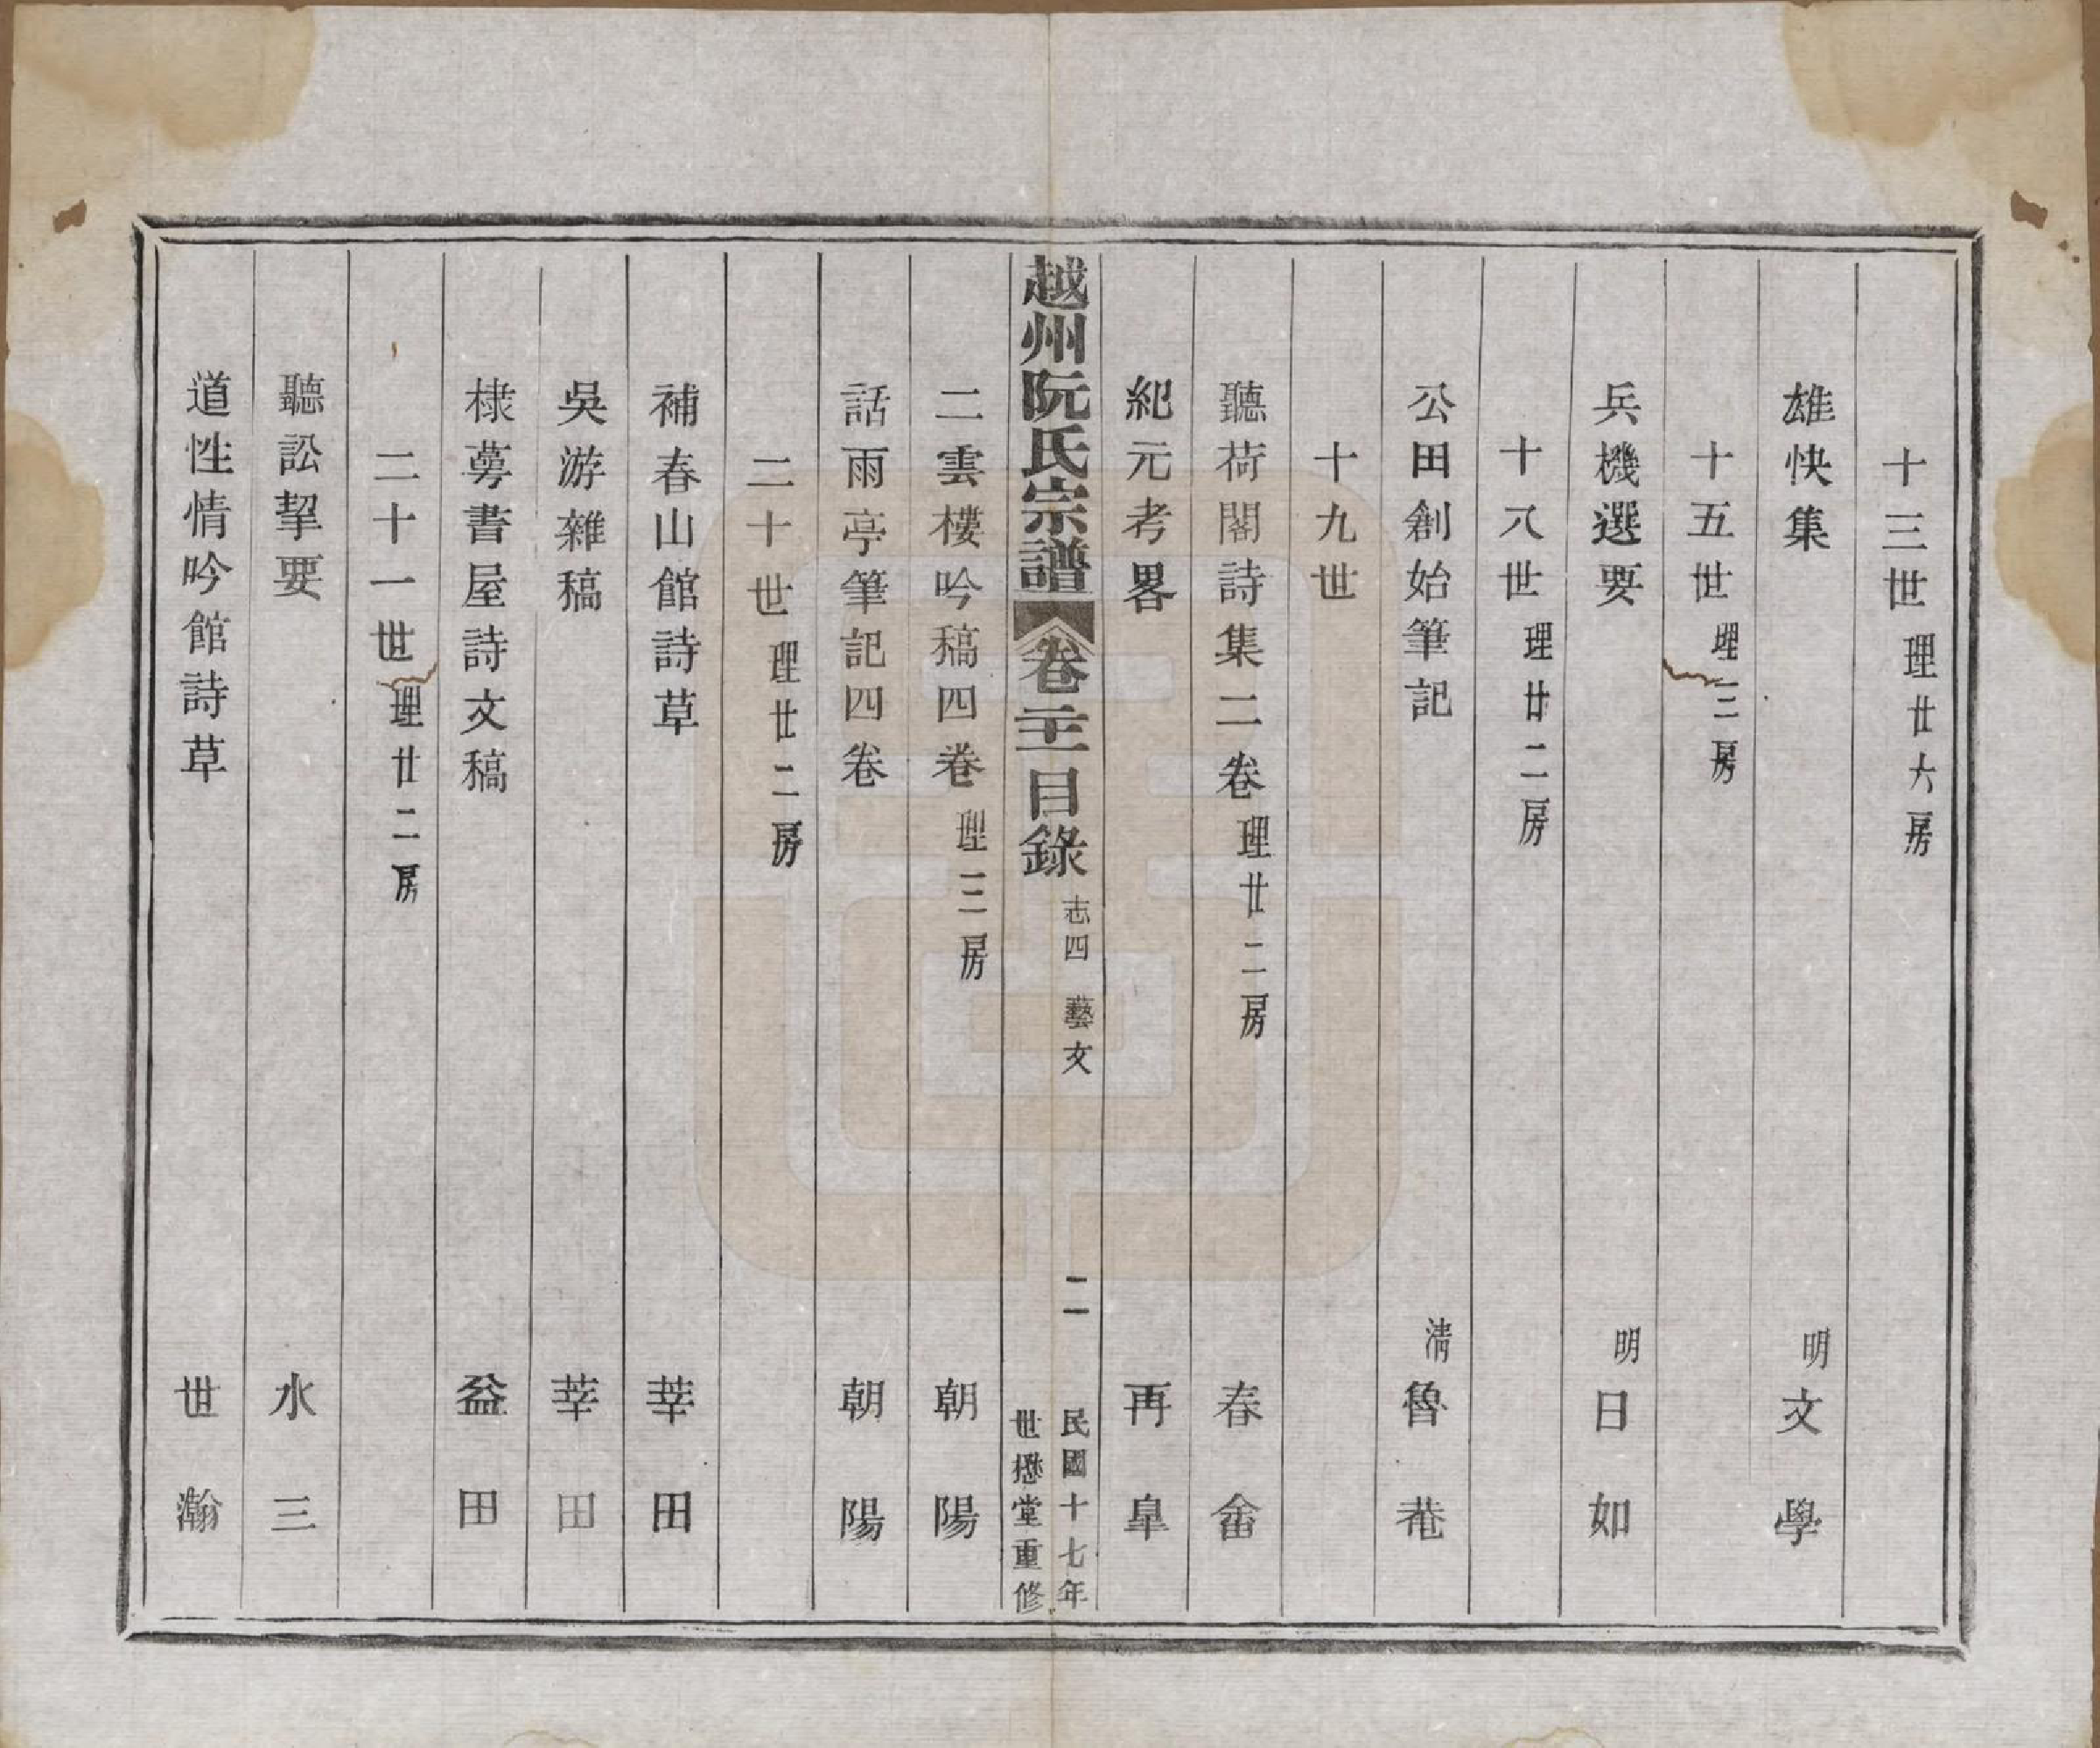 十三世理廿六房
雄快集 明文學
十五世理三房
兵機選要 明日如
十八世理廿二房
公田創始筆記 清魯菴
十九世
聽荷閣詩集二卷理廿二房 春畬
紀元考畧 再臯
越州阮氏宗譜 卷二十一目錄 志四 藝文 二 民國十七年
世懋堂重修
二雲樓吟稿四卷理三房 朝陽
話雨亭筆記四卷 朝陽
二十世理廿二房
補春山館詩草 莘田
吳游雜稿 莘田
棣萼書屋詩文稿 益田
二十一世理廿二房
聽訟挈要 水三
道性情吟館詩草 世瀚